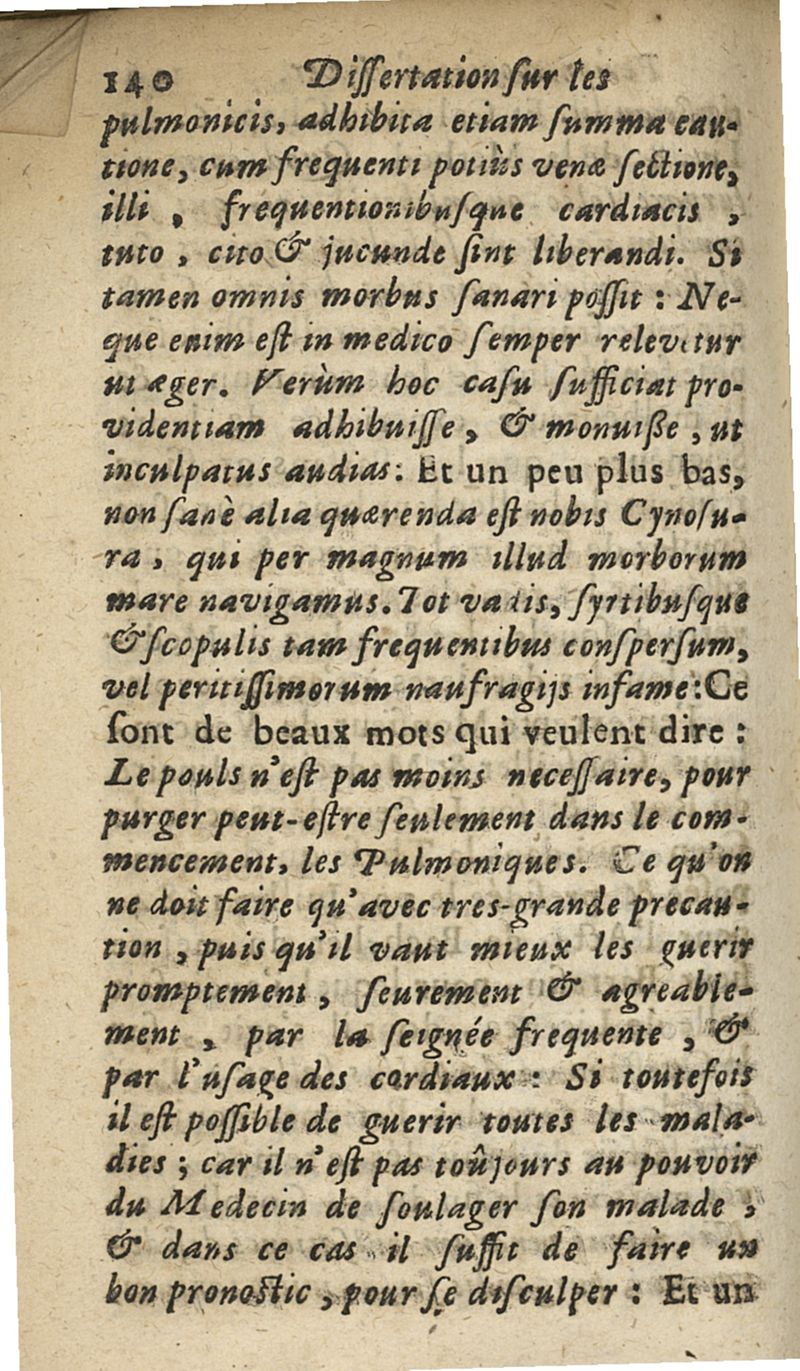 140 Dissertation sur les
pulmonicis, adhibita etiam summa cau-
tione, cum frequenti potiùs venæ sectione,
illi, frequentionibusque cardiacis,
tuto, cito & jucunde sint liberandi. Si
tamen omnis morbus sanari possit : Ne-
que enim est in medico semper relevetur
ut æger. Verùm hoc casu sufficiat pro-
videntiam adhibuisse, & monuisse, ut
inculpatus audias: Et un peu plus bas,
non sanè alia quærenda est nobis Cynosu-
ra, qui per magnum illud morborum
mare navigamus. Tot vadis, syrtibusque
& scopulis tam frequentibus conspersum,
vel peritissimorum naufragijs infame: Ce
sont de beaux mots qui veulent dire :
Le pouls n'est pas moins necessaire, pour
purger peut-estre seulement dans le com-
mencement, les Pulmoniques. Ce qu'on
ne doit faire qu'avec tres-grande precau-
tion, puis qu'il vaut mieux les guerir
promptement, seurement & agreable-
ment, par la seignée frequente, &
par l'usage des cordiaux : Si toutefois
il est possible de guerir toutes les mala-
dies ; car il n'est pas toûjours au pouvoir
du Medecin de soulager son malade,
& dans ce cas il suffit de faire un
bon pronostic, pour se disculper : Et un